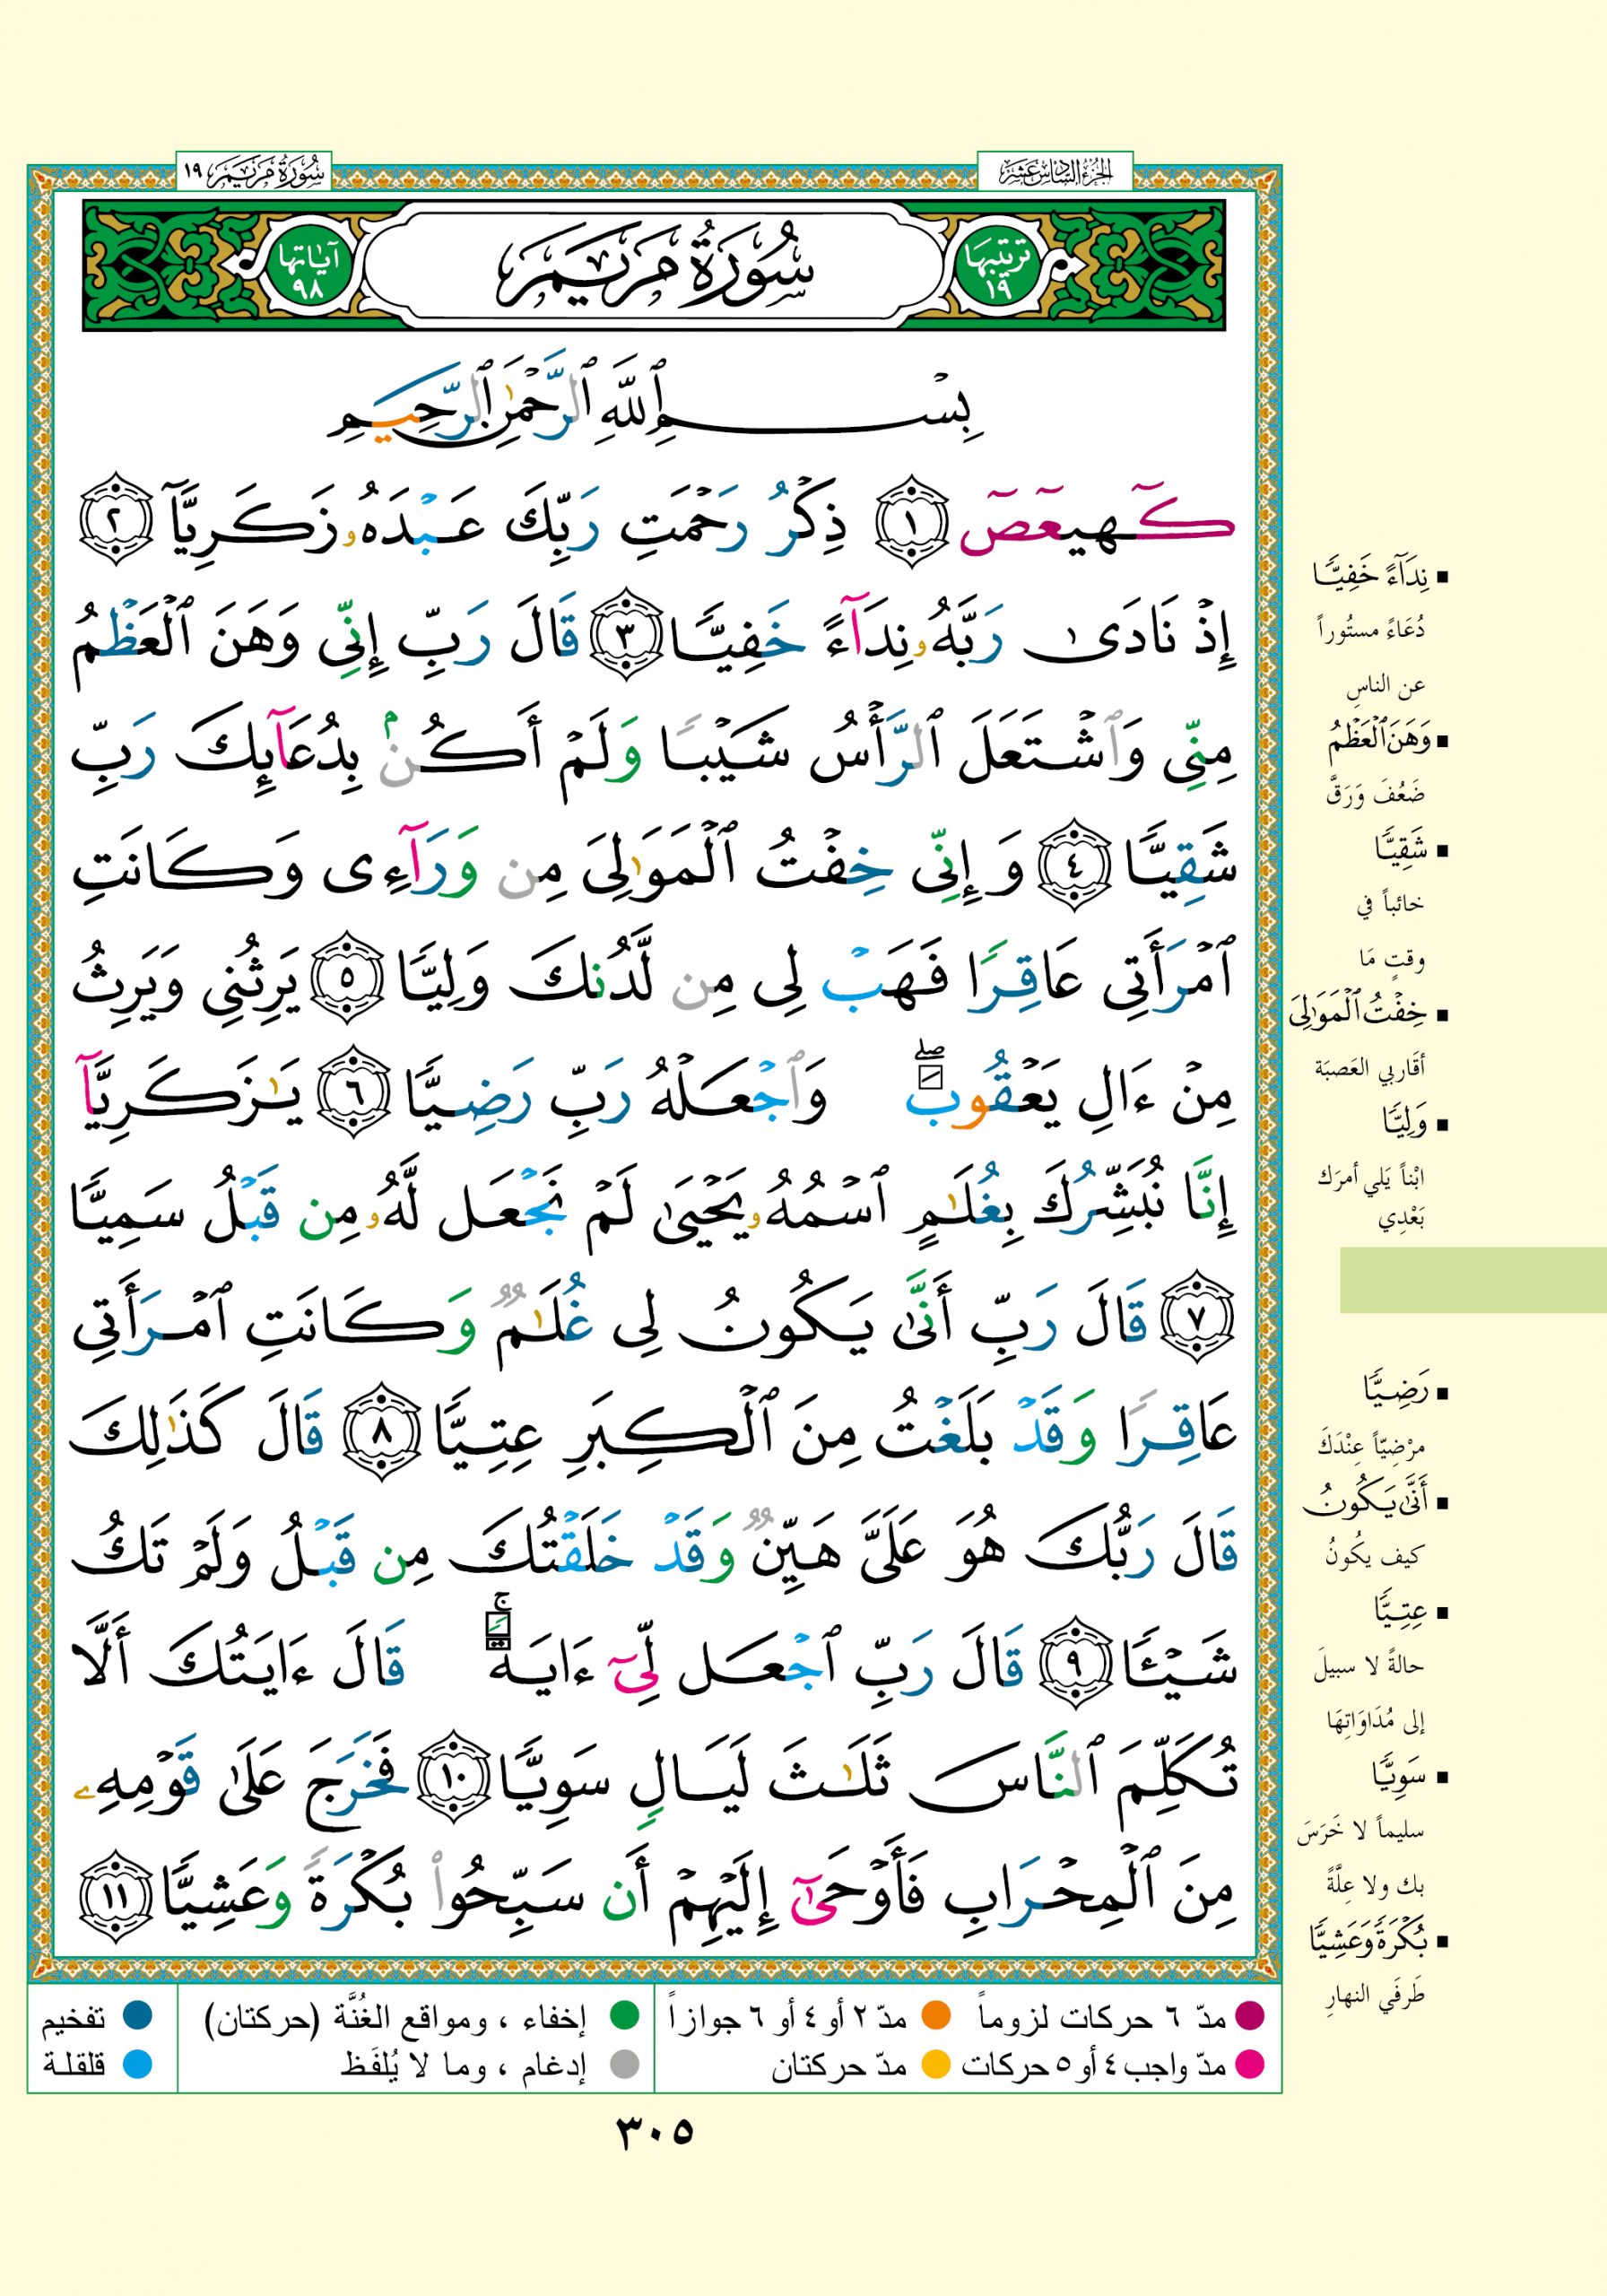 الجزء السادس عشر
سُورَةُ مَرْيَمَ ١٩
ترتيبها ١٩
سُورَةُ مَرْيَمَ
آياتها ٩٨
بِسْمِ ٱللَّهِ ٱلرَّحْمَٰنِ ٱلرَّحِيمِ
كٓهيعٓصٓ ١ ذِكْرُ رَحْمَتِ رَبِّكَ عَبْدَهُۥ زَكَرِيَّآ ٢
إِذْ نَادَىٰ رَبَّهُۥ نِدَآءً خَفِيًّا ٣ قَالَ رَبِّ إِنِّى وَهَنَ ٱلْعَظْمُ
مِنِّى وَٱشْتَعَلَ ٱلرَّأْسُ شَيْبًا وَلَمْ أَكُنۢ بِدُعَآئِكَ رَبِّ
شَقِيًّا ٤ وَإِنِّى خِفْتُ ٱلْمَوَٰلِىَ مِن وَرَآءِى وَكَانَتِ
ٱمْرَأَتِى عَاقِرًا فَهَبْ لِى مِن لَّدُنكَ وَلِيًّا ٥ يَرِثُنِى وَيَرِثُ
مِنْ ءَالِ يَعْقُوبَ ۖ وَٱجْعَلْهُ رَبِّ رَضِيًّا ٦ يَٰزَكَرِيَّآ
إِنَّا نُبَشِّرُكَ بِغُلَٰمٍ ٱسْمُهُۥ يَحْيَىٰ لَمْ نَجْعَل لَّهُۥ مِن قَبْلُ سَمِيًّا
٧ قَالَ رَبِّ أَنَّىٰ يَكُونُ لِى غُلَٰمٌ وَكَانَتِ ٱمْرَأَتِى
عَاقِرًا وَقَدْ بَلَغْتُ مِنَ ٱلْكِبَرِ عِتِيًّا ٨ قَالَ كَذَٰلِكَ
قَالَ رَبُّكَ هُوَ عَلَىَّ هَيِّنٌ وَقَدْ خَلَقْتُكَ مِن قَبْلُ وَلَمْ تَكُ
شَيْـًٔا ٩ قَالَ رَبِّ ٱجْعَل لِّىٓ ءَايَةً ۚ قَالَ ءَايَتُكَ أَلَّا
تُكَلِّمَ ٱلنَّاسَ ثَلَٰثَ لَيَالٍ سَوِيًّا ١٠ فَخَرَجَ عَلَىٰ قَوْمِهِۦ
مِنَ ٱلْمِحْرَابِ فَأَوْحَىٰٓ إِلَيْهِمْ أَن سَبِّحُوا۟ بُكْرَةً وَعَشِيًّا ١١
▪ نِدَآءً خَفِيًّا
دُعَاءً مستُوراً
عن الناسِ
▪ وَهَنَ ٱلْعَظْمُ
ضَعُفَ وَرَقَّ
▪ شَقِيًّا
خائباً في
وقتٍ مَا
▪ خِفْتُ ٱلْمَوَٰلِىَ
أقَاربي العَصبَة
▪ وَلِيًّا
ابْناً يَلي أمرَك
بَعْدِي
▪ رَضِيًّا
مرْضِيّاً عِنْدَكَ
▪ أَنَّىٰ يَكُونُ
كيف يكُونُ
▪ عِتِيًّا
حالةً لا سبيلَ
إلى مُدَاوَاتِهَا
▪ سَوِيًّا
سليماً لا خَرَسَ
بك ولا عِلَّةً
▪ بُكْرَةً وَعَشِيًّا
طَرفَي النهارِ
مدّ ٦ حركات لزوماً مدّ ٢ أو ٤ أو ٦ جوازاً إخفاء ، ومواقع الغُنَّة (حركتان) تفخيم
مدّ واجب ٤ أو ٥ حركات مدّ حركتان إدغام ، وما لا يُلفَظ قلقلة
٣٠٥